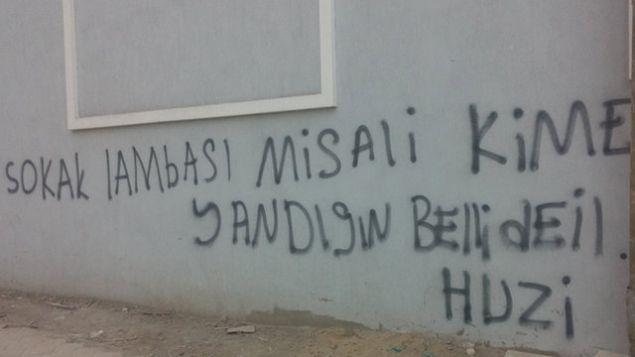 SOKAK lAMbASI MiSAli KiME
YANDIgIN BEllidEil.
HUZi